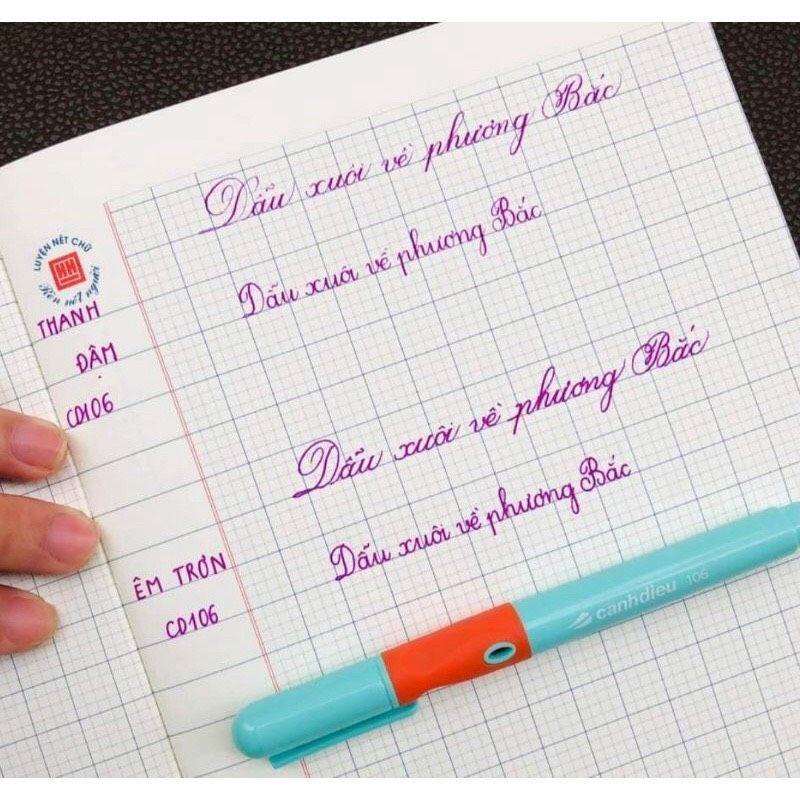 Dẩu xuôi về phương Bắc
Dẩu xuôi về phương Bắc
LUYỆN NÉT CHỮ
Rèn nết người
THANH
ĐẬM
CD106
Dẩu xuôi về phương Bắc
Dẩu xuôi về phương Bắc
ÊM TRƠN
CD106
canhdieu 106